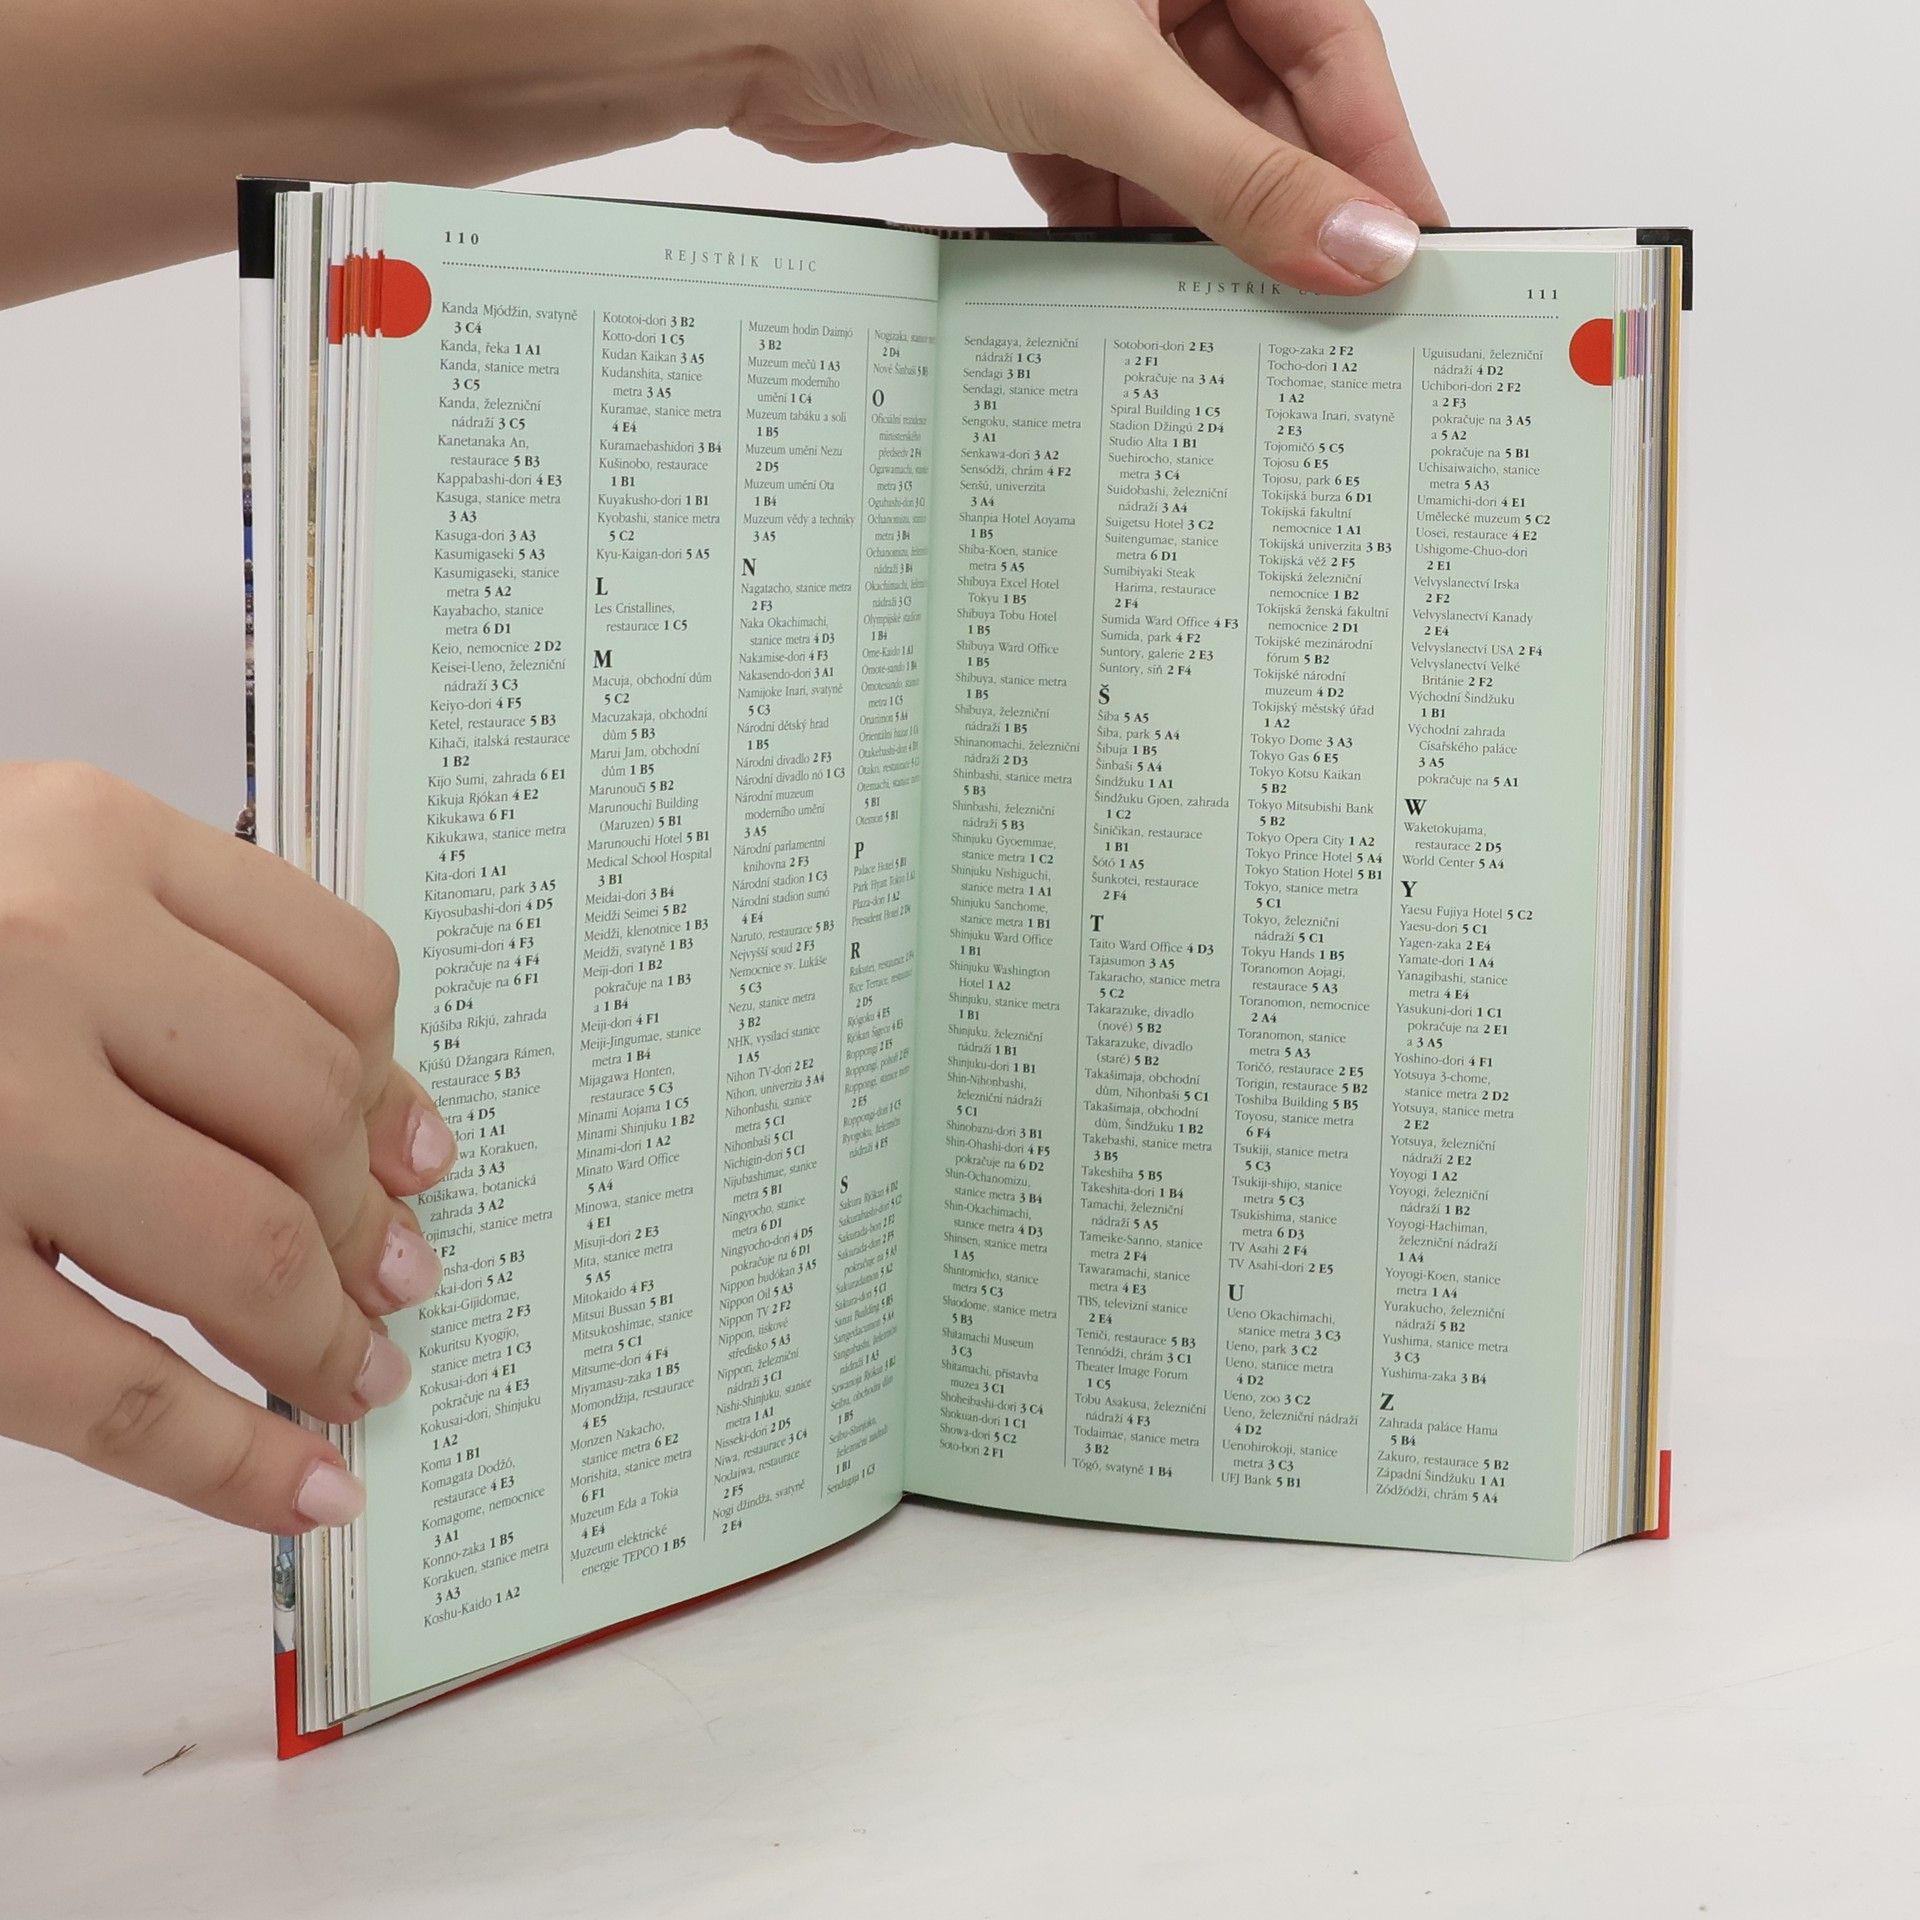 110
REJSTŘÍK ULIC
Kanda Mjódžin, svatyně
3 C4
Kanda, řeka 1 A1
Kanda, stanice metra
3 C5
Kanda, železniční
nádraží 3 C5
Kanetanaka An,
restaurace 5 B3
Kappabashi-dori 4 E3
Kasuga, stanice metra
3 A3
Kasuga-dori 3 A3
Kasumigaseki 5 A3
Kasumigaseki, stanice
metra 5 A2
Kayabacho, stanice
metra 6 D1
Keio, nemocnice 2 D2
Keisei-Ueno, železniční
nádraží 3 C3
Keiyo-dori 4 F5
Ketel, restaurace 5 B3
Kihači, italská restaurace
1 B2
Kijo Sumi, zahrada 6 E1
Kikuja Rjókan 4 E2
Kikukawa 6 F1
Kikukawa, stanice metra
4 F5
Kita-dori 1 A1
Kitanomaru, park 3 A5
Kiyosubashi-dori 4 D5
pokračuje na 6 E1
Kiyosumi-dori 4 F3
pokračuje na 4 F4
pokračuje na 6 F1
a 6 D4
Kjúšiba Rikjú, zahrada
5 B4
Kjúšú Džangara Rámen,
restaurace 5 B3
denmacho, stanice
etra 4 D5
dori 1 A1
wa Korakuen,
rada 3 A3
Koišikawa, botanická
zahrada 3 A2
ojimachi, stanice metra
F2
nsha-dori 5 B3
kkai-dori 5 A2
Kokkai-Gijidomae,
stanice metra 2 F3
Kokuritsu Kyogijo,
stanice metra 1 C3
Kokusai-dori 4 E1
pokračuje na 4 E3
Kokusai-dori, Shinjuku
1 A2
Koma 1 B1
Komagata Dodžó,
restaurace 4 E3
Komagome, nemocnice
3 A1
Konno-zaka 1 B5
Korakuen, stanice metra
3 A3
Koshu-Kaido 1 A2
Kototoi-dori 3 B2
Kotto-dori 1 C5
Kudan Kaikan 3 A5
Kudanshita, stanice
metra 3 A5
Kuramae, stanice metra
4 E4
Kuramaebashidori 3 B4
Kušinobo, restaurace
1 B1
Kuyakusho-dori 1 B1
Kyobashi, stanice metra
5 C2
Kyu-Kaigan-dori 5 A5
L
Les Cristallines,
restaurace 1 C5
M
Macuja, obchodní dům
5 C2
Macuzakaja, obchodní
dům 5 B3
Marui Jam, obchodní
dům 1 B5
Marunouči 5 B2
Marunouchi Building
(Maruzen) 5 B1
Marunouchi Hotel 5 B1
Medical School Hospital
3 B1
Meidai-dori 3 B4
Meidži Seimei 5 B2
Meidži, klenotnice 1 B3
Meidži, svatyně 1 B3
Meiji-dori 1 B2
pokračuje na 1 B3
a 1 B4
Meiji-dori 4 F1
Meiji-Jingumae, stanice
metra 1 B4
Mijagawa Honten,
restaurace 5 C3
Minami Aojama 1 C5
Minami Shinjuku 1 B2
Minami-dori 1 A2
Minato Ward Office
5 A4
Minowa, stanice metra
4 E1
Misuji-dori 2 E3
Mita, stanice metra
5 A5
Mitokaido 4 F3
Mitsui Bussan 5 B1
Mitsukoshimae, stanice
metra 5 C1
Mitsume-dori 4 F4
Miyamasu-zaka 1 B5
Momondžija, restaurace
4 E5
Monzen Nakacho,
stanice metra 6 E2
Morishita, stanice metra
6 F1
Muzeum Eda a Tokia
4 E4
Muzeum elektrické
energie TEPCO 1 B5
Muzeum hodin Daimjó
3 B2
Muzeum mečů 1 A3
Muzeum moderního
umění 1 C4
Muzeum tabáku a soli
1 B5
Muzeum umění Nezu
2 D5
Muzeum umění Ota
1 B4
Muzeum vědy a techniky
3 A5
N
Nagatacho, stanice metra
2 F3
Naka Okachimachi,
stanice metra 4 D3
Nakamise-dori 4 F3
Nakasendo-dori 3 A1
Namijoke Inari, svatyně
5 C3
Národní dětský hrad
1 B5
Národní divadlo 2 F3
Národní divadlo nó 1 C3
Národní muzeum
moderního umění
3 A5
Národní parlamentní
knihovna 2 F3
Národní stadion 1 C3
Národní stadion sumó
4 E4
Naruto, restaurace 5 B3
Nejvyšší soud 2 F3
Nemocnice sv. Lukáše
5 C3
Nezu, stanice metra
3 B2
NHK, vysílací stanice
1 A5
Nihon TV-dori 2 E2
Nihon, univerzita 3 A4
Nihonbashi, stanice
metra 5 C1
Nihonbaši 5 C1
Nichigin-dori 5 C1
Nijubashimae, stanice
metra 5 B1
Ningyocho, stanice
metra 6 D1
Ningyocho-dori 4 D5
pokračuje na 6 D1
Nippon budókan 3 A5
Nippon Oil 5 A3
Nippon TV 2 F2
Nippon, tiskové
středisko 5 A3
Nippori, železniční
nádraží 3 C1
Nishi-Shinjuku, stanice
metra 1 A1
Nisseki-dori 2 D5
Niwa, restaurace 3 C4
Nodaiwa, restaurace
2 F5
Nogi džindža, svatyně
2 E4
Nogizaka,
2 D4
Nové Šinbaši
O
Oficiální rezidence
ministerského
předsedy 2 F4
Ogawamachi,
metra 3 C5
Ogubashi-dori
Ochanomizu,
metra 3 B4
Ochanomizu,
nádraží 3 B4
Okachimachi,
nádraží 3 C3
Olympijské stadion
1 B4
Ome-Kaido 1 A1
Omote-sando
Omotesando,
metra 1 C5
Onarimon 5 A4
Orientální bazar
Otakebashi-dori
Otako, restaurace
Otemachi, stanice
5 B1
Otemon 5 B1
P
Palace Hotel 5 B1
Park Hyatt Tokyo
Plaza-dori 1 A2
President Hotel 2 D4
R
restaurace
Rice Terrace,
2 D5
Rjógoku 4 E5
Rjókan
Roppongi 2 E5
Roppongi,
Roppongi, stanice metra
2 E5
Roppongi-dori 1 C5
Ryogoku, železniční
nádraží 4 E5
S
Sakura Rjókan 4 D2
Sakurabashi-dori 5 C2
Sakurada-bori 2 E2
Sakurada-dori 2 F5
pokračuje 5 A3
Sakuradamon 5 A2
Sakura-dori 5 C1
Sanai Building 5 B3
Sangedacumon 5 A4
nádraží 1 A3
Sawanoja Rjókan 3 B2
Seibu, obchodní dům
1 B5
Seibu-Shinjuku,
železniční nádraží
1 B1
Sendagaja 1 C3
REJSTŘÍK
111
Sendagaya, železniční
nádraží 1 C3
Sendagi 3 B1
Sendagi, stanice metra
3 B1
Sengoku, stanice metra
3 A1
Senkawa-dori 3 A2
Sensódži, chrám 4 F2
Senšú, univerzita
3 A4
Shanpia Hotel Aoyama
1 B5
Shiba-Koen, stanice
metra 5 A5
Shibuya Excel Hotel
Tokyu 1 B5
Shibuya Tobu Hotel
1 B5
Shibuya Ward Office
1 B5
Shibuya, stanice metra
1 B5
Shibuya, železniční
nádraží 1 B5
Shinanomachi, železniční
nádraží 2 D3
Shinbashi, stanice metra
5 B3
Shinbashi, železniční
nádraží 5 B3
Shinjuku Gyoemmae,
stanice metra 1 C2
Shinjuku Nishiguchi,
stanice metra 1 A1
Shinjuku Sanchome,
stanice metra 1 B1
Shinjuku Ward Office
1 B1
Shinjuku Washington
Hotel 1 A2
Shinjuku, stanice metra
1 B1
Shinjuku, železniční
nádraží 1 B1
Shinjuku-dori 1 B1
Shin-Nihonbashi,
železniční nádraží
5 C1
Shinobazu-dori 3 B1
Shin-Ohashi-dori 4 F5
pokračuje na 6 D2
Shin-Ochanomizu,
stanice metra 3 B4
Shin-Okachimachi,
stanice metra 4 D3
Shinsen, stanice metra
1 A5
Shintomicho, stanice
metra 5 C3
Shiodome, stanice metra
5 B3
Shitamachi Museum
3 C3
Shitamachi, přístavba
muzea 3 C1
Shoheibashi-dori 3 C4
Shokuan-dori 1 C1
Showa-dori 5 C2
Soto-bori 2 F1
Sotobori-dori 2 E3
a 2 F1
pokračuje na 3 A4
a 5 A3
Spiral Building 1 C5
Stadion Džingú 2 D4
Studio Alta 1 B1
Suehirocho, stanice
metra 3 C4
Suidobashi, železniční
nádraží 3 A4
Suigetsu Hotel 3 C2
Suitengumae, stanice
metra 6 D1
Sumibiyaki Steak
Harima, restaurace
2 F4
Sumida Ward Office 4 F3
Sumida, park 4 F2
Suntory, galerie 2 E3
Suntory, síň 2 F4
Š
Šiba 5 A5
Šiba, park 5 A4
Šibuja 1 B5
Šinbaši 5 A4
Šindžuku 1 A1
Šindžuku Gjoen, zahrada
1 C2
Šiničikan, restaurace
1 B1
Šótó 1 A5
Šunkotei, restaurace
2 F4
T
Taito Ward Office 4 D3
Tajasumon 3 A5
Takaracho, stanice metra
5 C2
Takarazuke, divadlo
(nové) 5 B2
Takarazuke, divadlo
(staré) 5 B2
Takašimaja, obchodní
dům, Nihonbaši 5 C1
Takašimaja, obchodní
dům, Šindžuku 1 B2
Takebashi, stanice metra
3 B5
Takeshiba 5 B5
Takeshita-dori 1 B4
Tamachi, železniční
nádraží 5 A5
Tameike-Sanno, stanice
metra 2 F4
Tawaramachi, stanice
metra 4 E3
TBS, televizní stanice
2 E4
Teniči, restaurace 5 B3
Tennódži, chrám 3 C1
Theater Image Forum
1 C5
Tobu Asakusa, železniční
nádraží 4 F3
Todaimae, stanice metra
3 B2
Tógó, svatyně 1 B4
Togo-zaka 2 F2
Tocho-dori 1 A2
Tochomae, stanice metra
1 A2
Tojokawa Inari, svatyně
2 E3
Tojomičó 5 C5
Tojosu 6 E5
Tojosu, park 6 E5
Tokijská burza 6 D1
Tokijská fakultní
nemocnice 1 A1
Tokijská univerzita 3 B3
Tokijská věž 2 F5
Tokijská železniční
nemocnice 1 B2
Tokijská ženská fakultní
nemocnice 2 D1
Tokijské mezinárodní
fórum 5 B2
Tokijské národní
muzeum 4 D2
Tokijský městský úřad
1 A2
Tokyo Dome 3 A3
Tokyo Gas 6 E5
Tokyo Kotsu Kaikan
5 B2
Tokyo Mitsubishi Bank
5 B2
Tokyo Opera City 1 A2
Tokyo Prince Hotel 5 A4
Tokyo Station Hotel 5 B1
Tokyo, stanice metra
5 C1
Tokyo, železniční
nádraží 5 C1
Tokyu Hands 1 B5
Toranomon Aojagi,
restaurace 5 A3
Toranomon, nemocnice
2 A4
Toranomon, stanice
metra 5 A3
Toričó, restaurace 2 E5
Torigin, restaurace 5 B2
Toshiba Building 5 B5
Toyosu, stanice metra
6 F4
Tsukiji, stanice metra
5 C3
Tsukiji-shijo, stanice
metra 5 C3
Tsukishima, stanice
metra 6 D3
TV Asahi 2 F4
TV Asahi-dori 2 E5
U
Ueno Okachimachi,
stanice metra 3 C3
Ueno, park 3 C2
Ueno, stanice metra
4 D2
Ueno, zoo 3 C2
Ueno, železniční nádraží
4 D2
Uenohirokoji, stanice
metra 3 C3
UFJ Bank 5 B1
Uguisudani, železniční
nádraží 4 D2
Uchibori-dori 2 F2
a 2 F3
pokračuje na 3 A5
a 5 A2
pokračuje na 5 B1
Uchisaiwaicho, stanice
metra 5 A3
Umamichi-dori 4 E1
Umělecké muzeum 5 C2
Uosei, restaurace 4 E2
Ushigome-Chuo-dori
2 E1
Velvyslanectví Irska
2 F2
Velvyslanectví Kanady
2 E4
Velvyslanectví USA 2 F4
Velvyslanectví Velké
Británie 2 F2
Východní Šindžuku
1 B1
Východní zahrada
Císařského paláce
3 A5
pokračuje na 5 A1
W
Waketokujama,
restaurace 2 D5
World Center 5 A4
Y
Yaesu Fujiya Hotel 5 C2
Yaesu-dori 5 C1
Yagen-zaka 2 E4
Yamate-dori 1 A4
Yanagibashi, stanice
metra 4 E4
Yasukuni-dori 1 C1
pokračuje na 2 E1
a 3 A5
Yoshino-dori 4 F1
Yotsuya 3-chome,
stanice metra 2 D2
Yotsuya, stanice metra
2 E2
Yotsuya, železniční
nádraží 2 E2
Yoyogi 1 A2
Yoyogi, železniční
nádraží 1 B2
Yoyogi-Hachiman,
železniční nádraží
1 A4
Yoyogi-Koen, stanice
metra 1 A4
Yurakucho, železniční
nádraží 5 B2
Yushima, stanice metra
3 C3
Yushima-zaka 3 B4
Z
Zahrada paláce Hama
5 B4
Zakuro, restaurace 5 B2
Západní Šindžuku 1 A1
Zódžódži, chrám 5 A4